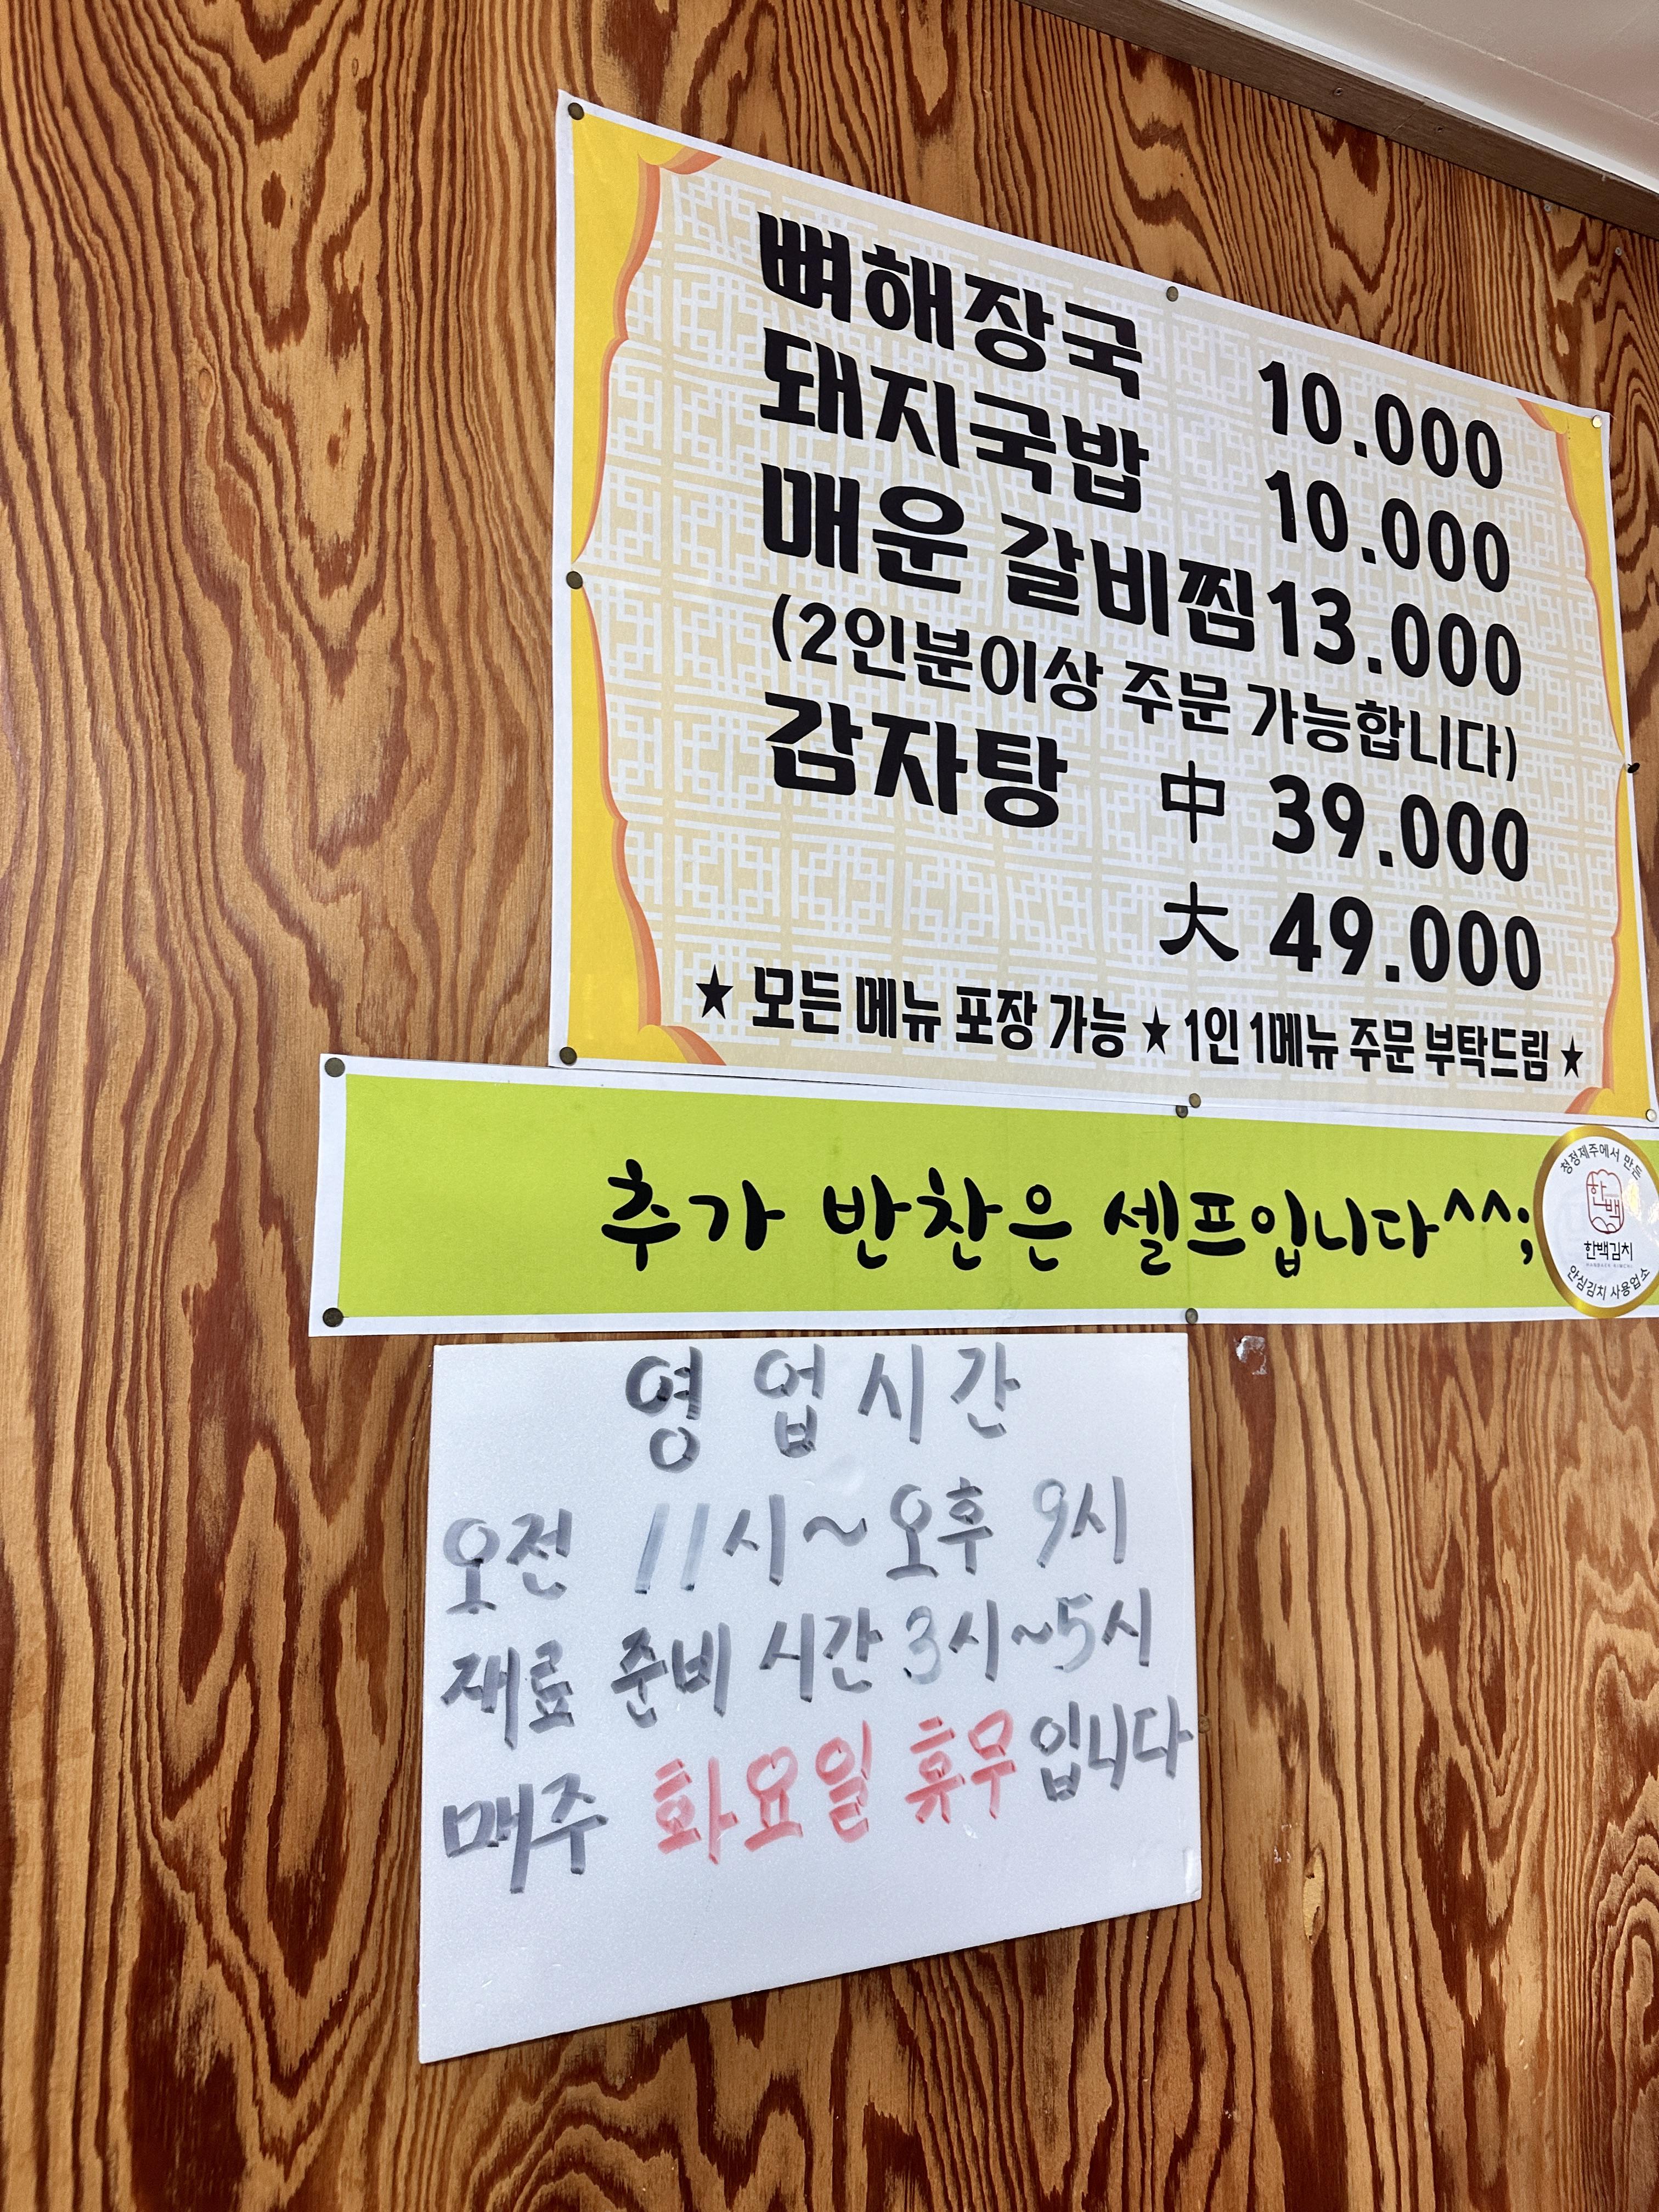 뼈해장국 10.000
돼지국밥 10.000
매운 갈비찜 13.000
(2인분이상 주문 가능합니다)
감자탕 中 39.000
大 49.000
★ 모든 메뉴 포장 가능 ★ 1인 1메뉴 주문 부탁드림 ★
추가 반찬은 셀프입니다^^;
청정제주에서 만든
한백
한백김치
HANBAEK KIMCHI
안심김치 사용업소
영업시간
오전 11시~오후 9시
재료 준비 시간 3시~5시
매주 화요일 휴무입니다